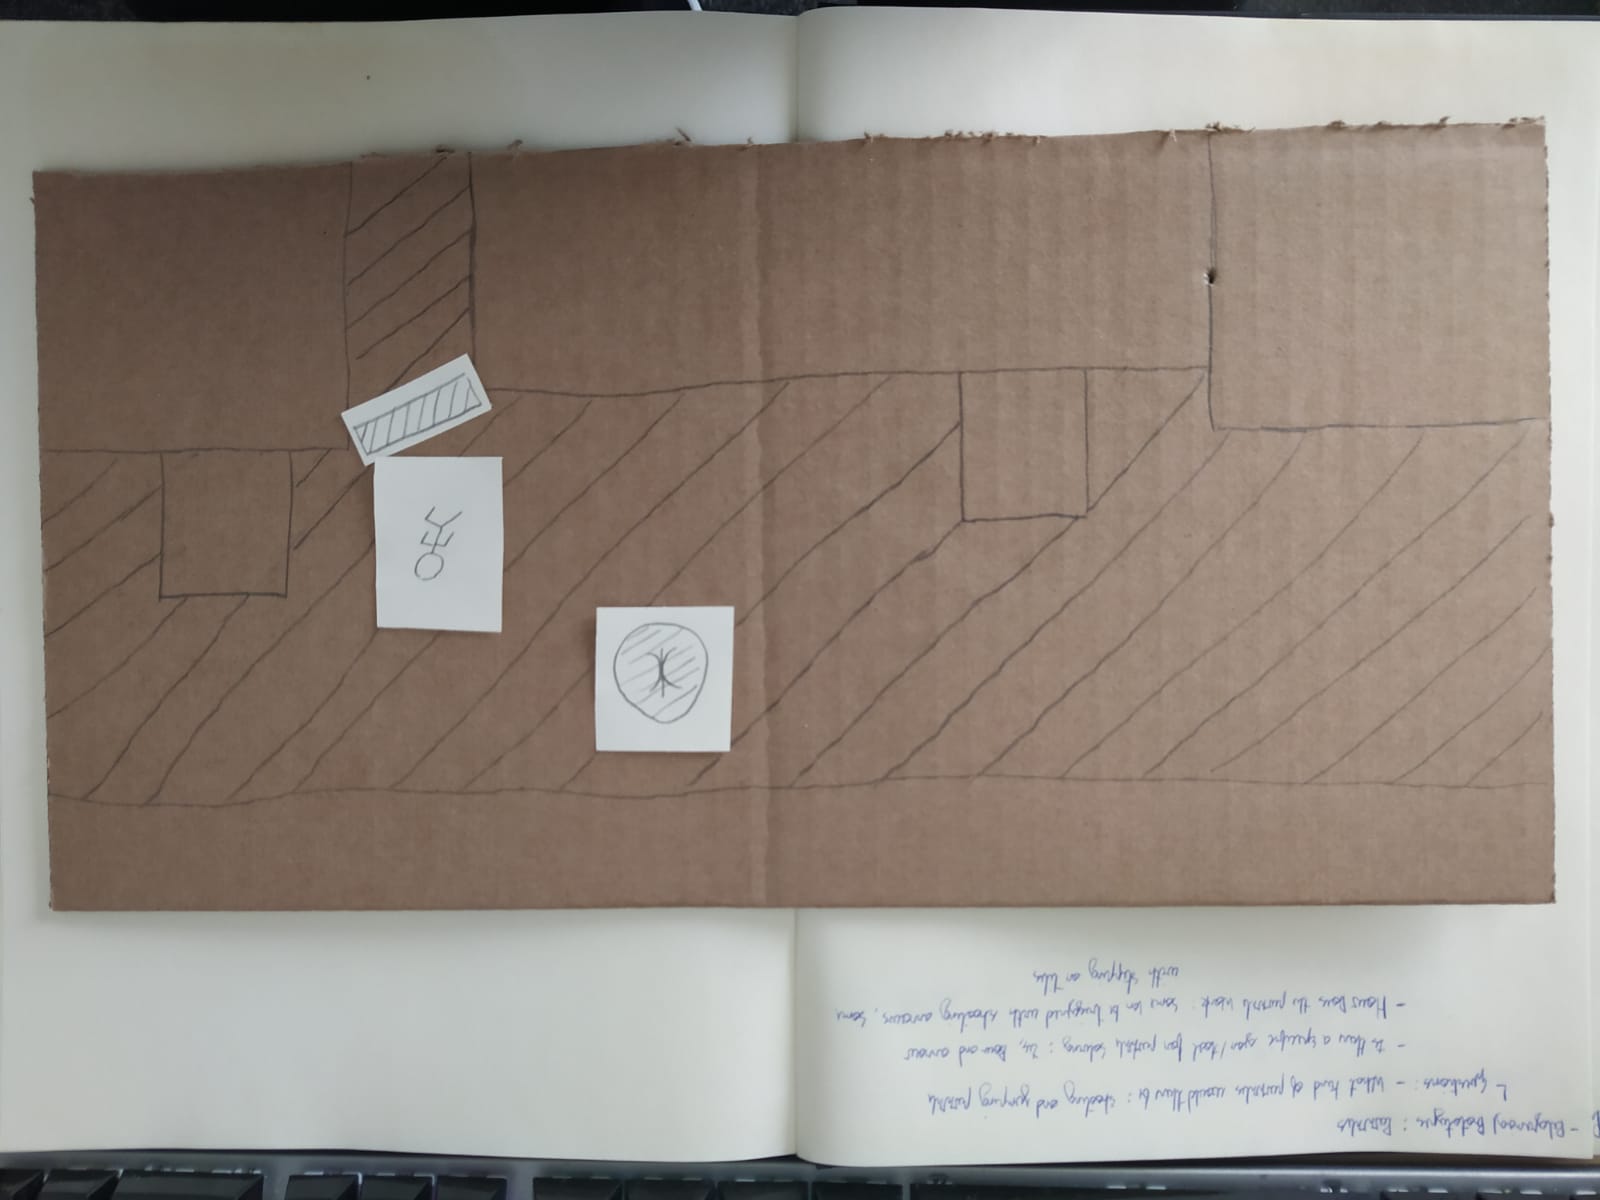 - Prototype: Puzzles
Questions: - What kind of puzzles would there be: shooting and jumping puzzle
- Is there a specific gear/tool for puzzle solving: Yes, Bow and arrow
- How Does the puzzle work: some can be triggered with shooting arrows, some
with stepping on tiles